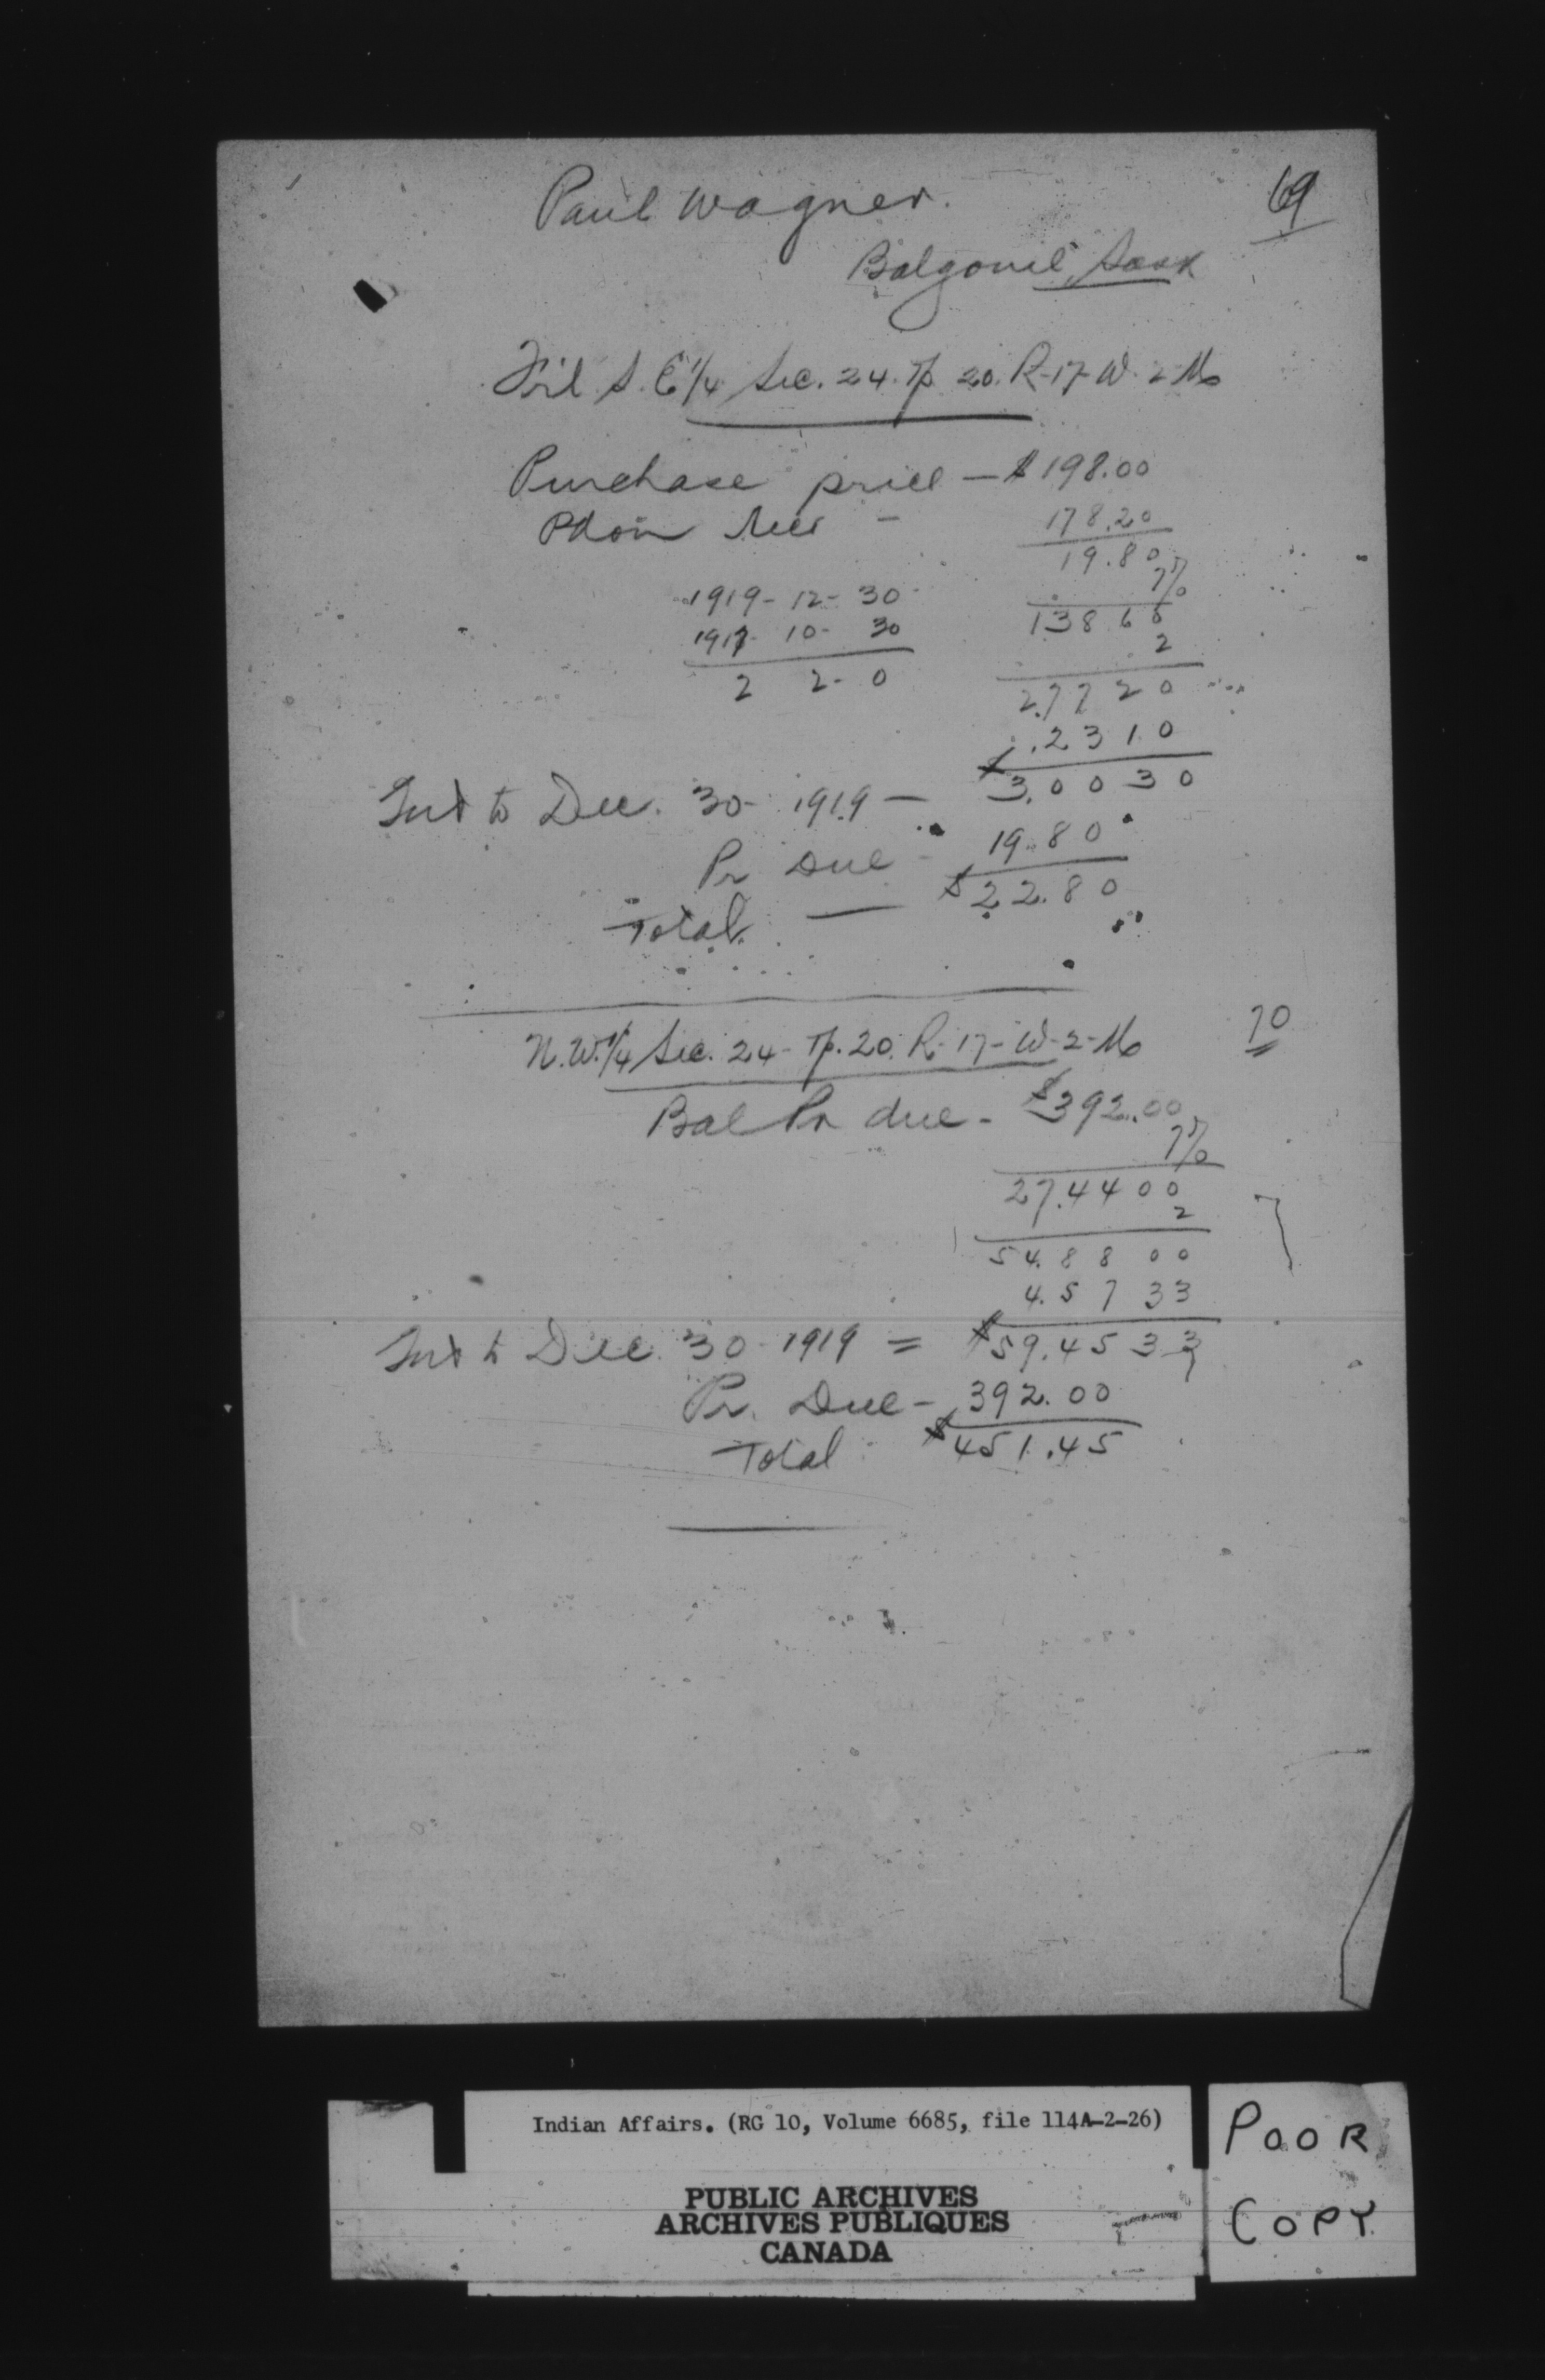 Paul Wagner.
69
Balgonie, Sask
Frl S.E 1/4 Sec. 24. Tp. 20. R-17-W-2-M
Purchase price — $198.00
178.20
19.80
7%
1919- 12- 30
1917- 10- 30
13860
2
2 2- 0
2.7720
.2310
Int to Dec. 30- 1919 — $3.0030
Pr Due - 19.80
Total — $22.80
N.W. 1/4 Sec. 24- Tp. 20. R-17-W-2-M
70
Bal Pr due - $392.00
7%
27.4400
2
54.8800
4.5733
Int to Dec. 30 1919 = $59.4533
Pr. Due - 392.00
Total $451.45
Indian Affairs. (RG 10, Volume 6685, file 114A-2-26)
PUBLIC ARCHIVES
ARCHIVES PUBLIQUES
CANADA
POOR
COPY